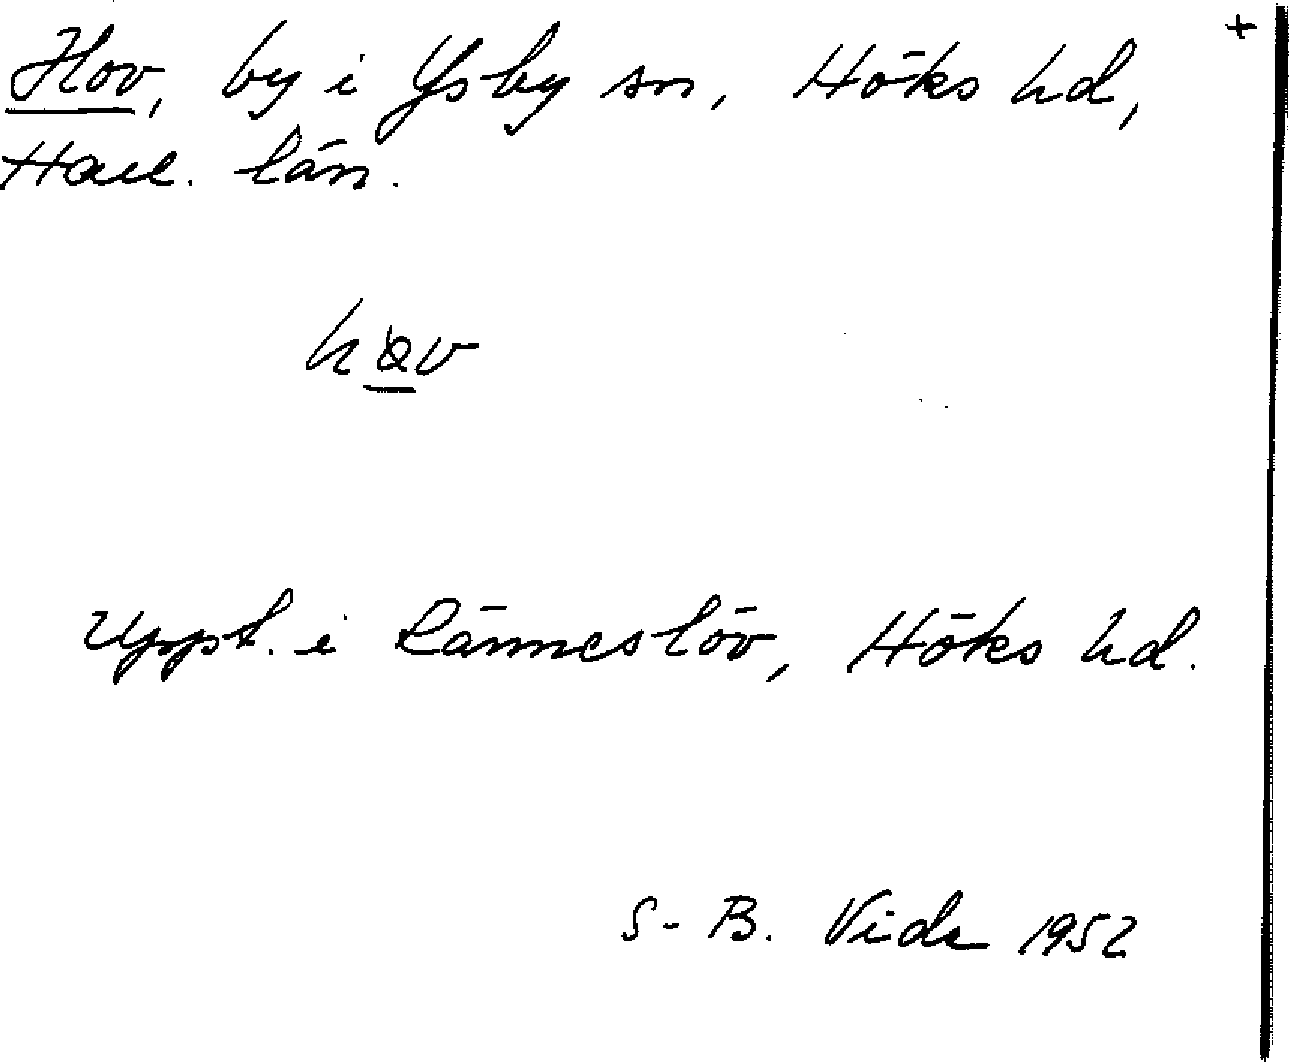 +
Hov, by i Ysby sn, Höks hd,
Hall. län.
Uppt. i Ränneslöv, Höks hd.
S-B. Vide 1952